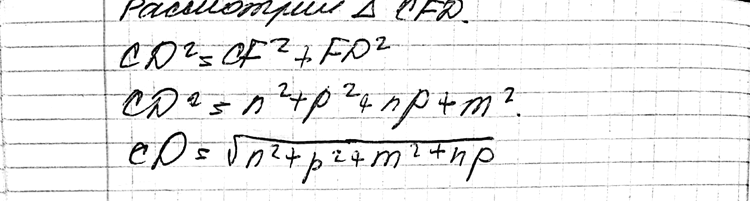 Рассмотрим Δ CFD.
CD²=CF²+FD²
CD²=n²+p²+np+m².
CD=√n²+p²+m²+np